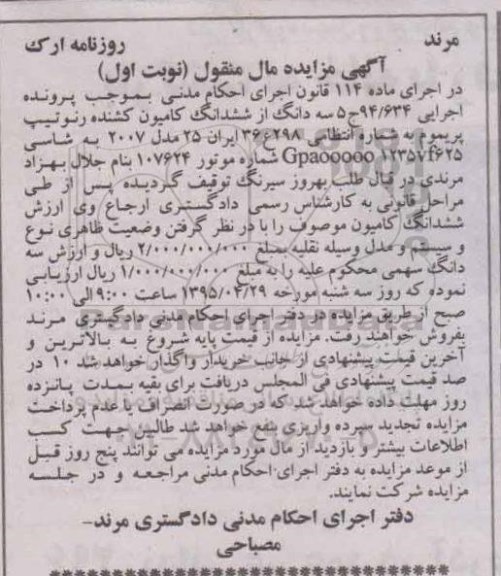 مرند
روزنامه ارک
آگهی مزایده مال منقول (نوبت اول)
در اجرای ماده ۱۱۴ قانون اجرای احکام مدنی بموجب پرونده
اجرایی ۹۴/۶۳۴ج۵ سه دانگ از ششدانگ کامیون کشنده رنوتیپ
پریموم به شماره انتظامی ۲۹۸ع۳۶ ایران ۲۵ مدل ۲۰۰۷ به شاسی
Gpa00000 شماره موتور ۱۰۷۶۲۴ بنام جلال بهزاد
مرندی در قبال طلب بهروز سیرنگ توقیف گردیده پس از طی
مراحل قانونی به کارشناس رسمی دادگستری ارجاع وی ارزش
ششدانگ کامیون موصوف را با در نظر گرفتن وضعیت ظاهری نوع
و سیستم و مدل وسیله نقلیه بمبلغ ۲/۰۰۰/۰۰۰/۰۰۰ ریال و ارزش سه
دانگ سهمی محکوم علیه را به مبلغ ۱/۰۰۰/۰۰۰/۰۰۰ ریال ارزیابی
نموده که روز سه شنبه مورخه ۱۳۹۵/۰۴/۲۹ ساعت ۹:۰۰ الی ۱۰:۰۰
صبح از طریق مزایده در دفتر اجرای احکام مدنی دادگستری مرند
بفروش خواهند رفت. مزایده از قیمت پایه شروع به بالاترین و
آخرین قیمت پیشنهادی از جانب خریدار واگذار خواهد شد ۱۰ در
صد قیمت پیشنهادی فی المجلس دریافت برای بقیه بمدت پانزده
روز مهلت داده خواهد شد که در صورت انصراف یا عدم پرداخت
مزایده تجدید سپرده واریزی بنفع خواهد شد طالبین جهت کسب
اطلاعات بیشتر و بازدید از مال مورد مزایده می توانند پنج روز قبل
از موعد مزایده به دفتر اجرای احکام مدنی مراجعه و در جلسه
مزایده شرکت نمایند.
دفتر اجرای احکام مدنی دادگستری مرند-
مصباحی